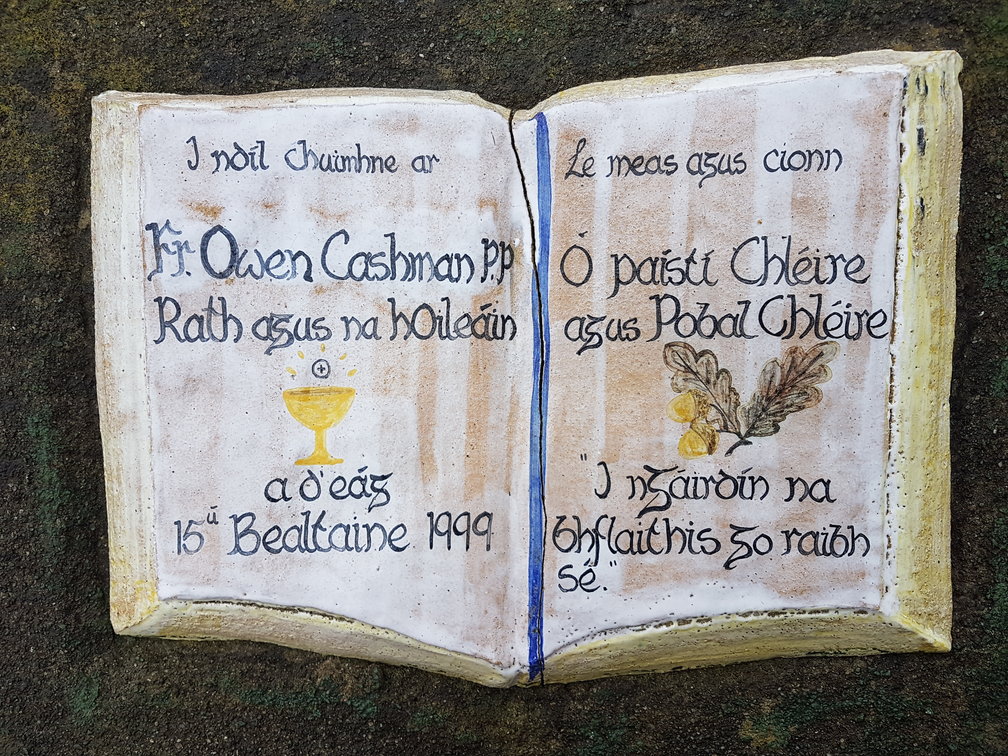 I ndíl chuimhne ar
Fr. Owen Cashman P.P
Rath agus na hOileáin
a d'éág
15ú Bealtaine 1999
Le meas agus cionn
Ó páistí Chléire
agus Pobal Chléire
"I ngáirdín na
bhflaithis go raibh
sé."